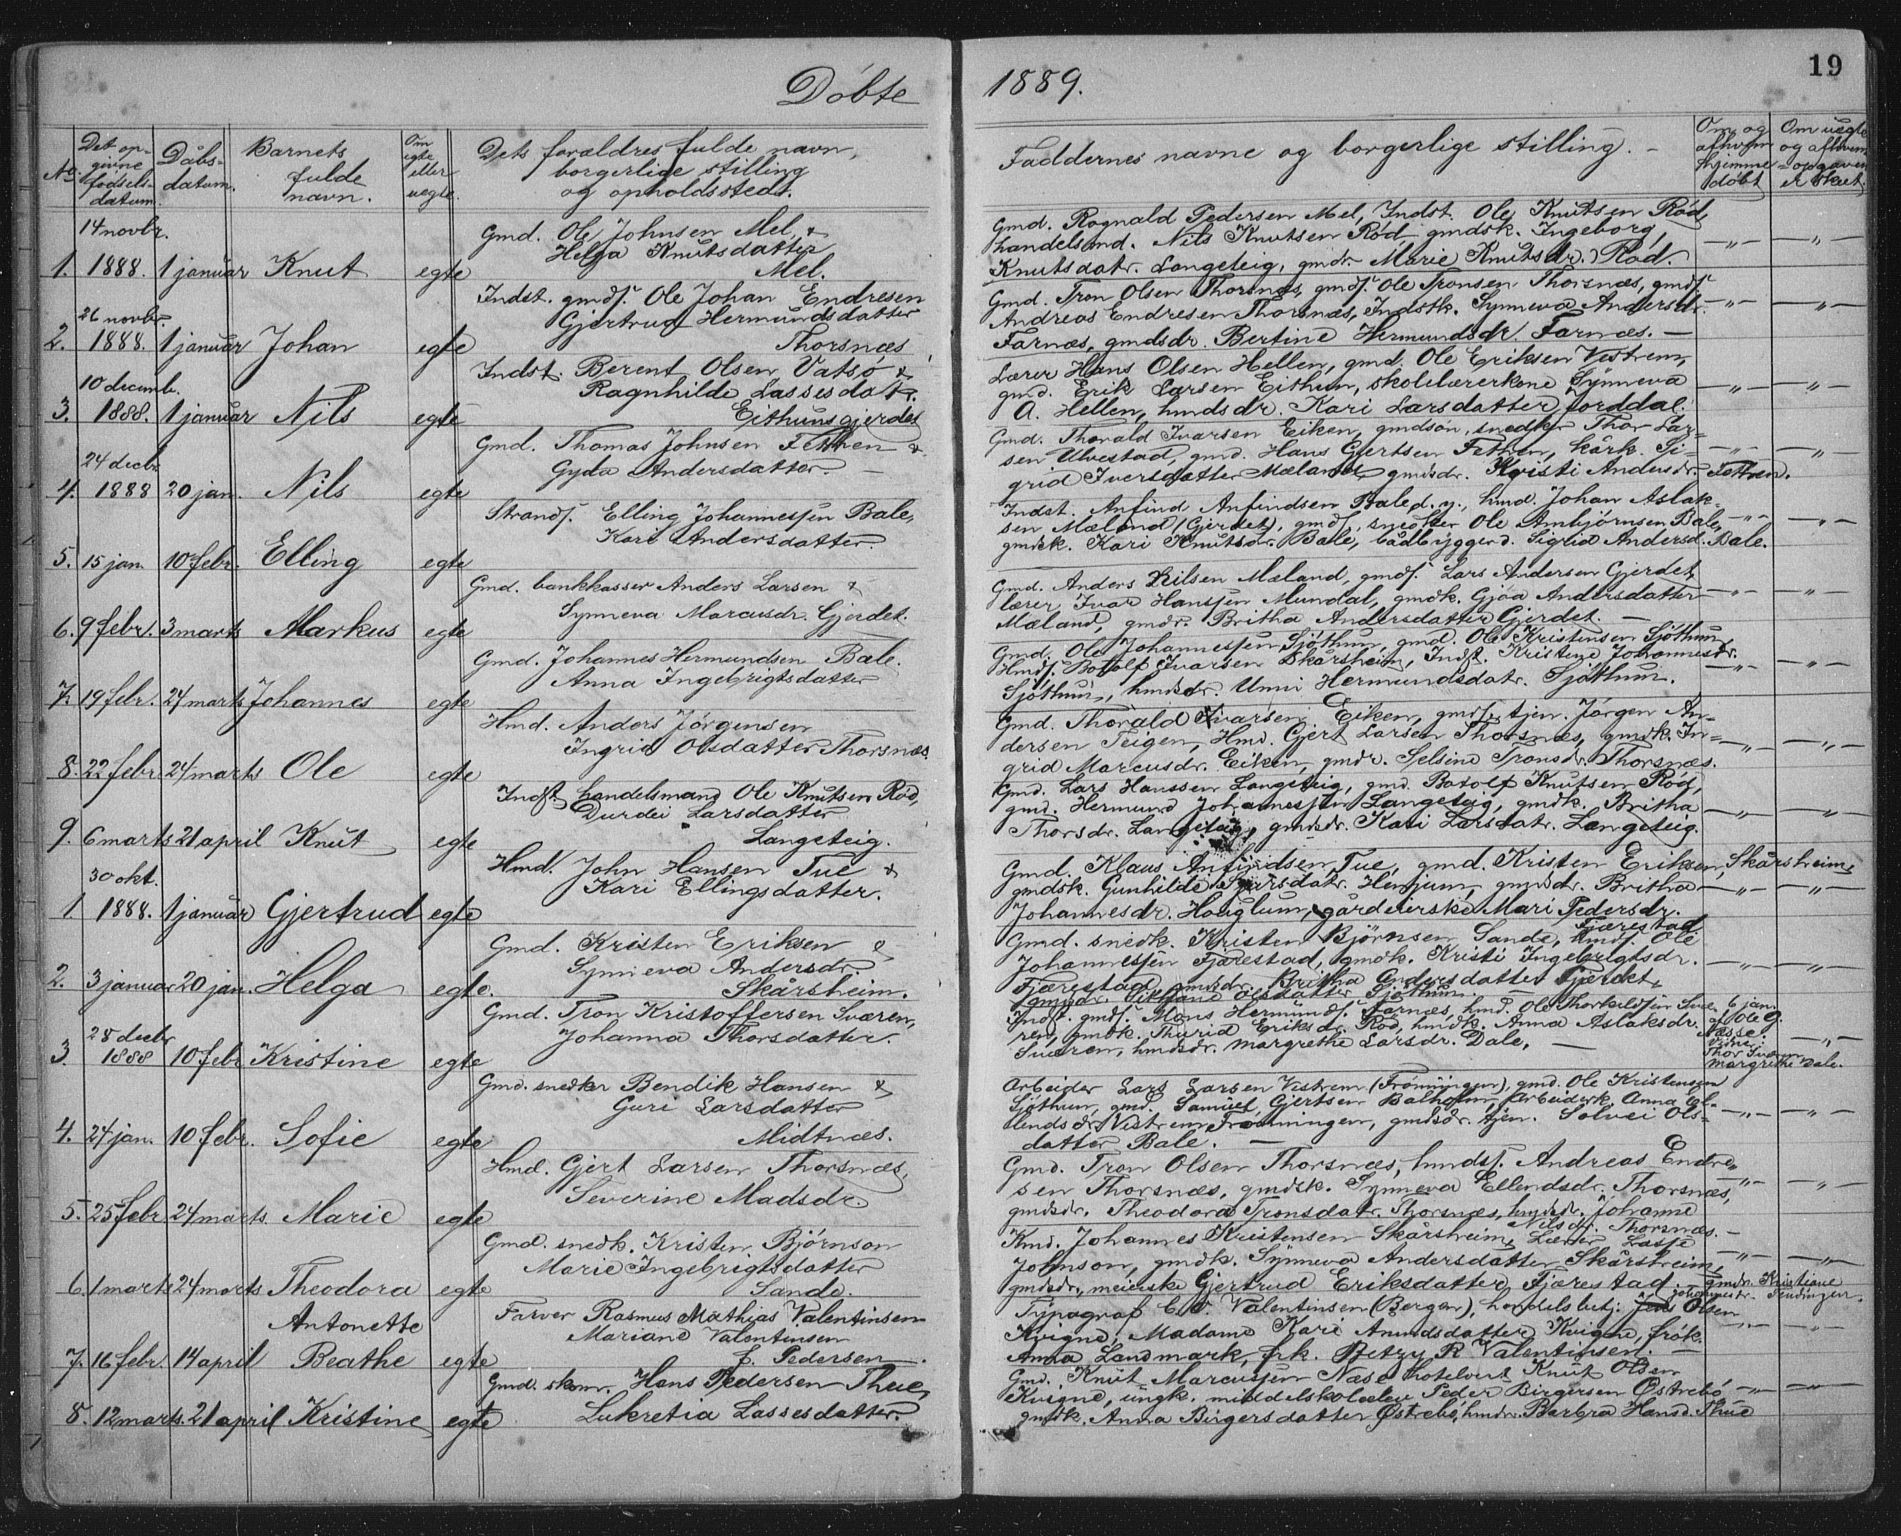 Döbte
1889.
19
No.
Det op-
givne
fødsels-
datum.
Dåbs-
datum.
Barnets
fulde
navn.
Om
egte
eller
uegte.
Dets forældres fulde navn,
borgerlige stilling
og opholdssted.
Faddernes navne og borgerlige stilling. -
Om og
af hvem
hjemme
døbt
Om uegte
og af hvem
opgaven
er skeet.
1. 14 novbr. 1888. 1 januar Knut egte
Gmd. Ole Johnsen Mel &
Helga Knutsdatter
Mel.
Gmd. Rognald Pedersen Mel, Indst. Ole Knutsen Röd,
handelsmd. Nils Knutsen Röd gmdsk. Ingeborg,
Knutsdatr. Langeteig, gmdr. Marie Knutsdr. Röd.
2. 26 novbr. 1888. 1 januar Johan egte
Indst. gmds. Ole Johan Endresen
Gjertrud Hermundsdatter
Thorsnæs
Gmd. Tron Olsen Thorsnæs, gmds. Ole Tronsen Thorsnæs, gmds
Andreas Endresen Thorsnæs, Indstk. Synneva Andersdr.
Farnæs, gmdsdr. Bertine Hermundsdr. Farnæs. -
3. 10 decemb. 1888. 1 januar Nils egte
Indst. Berent Olsen Vatsö &
Ragnhilde Lassesdatr.
Eithunsgjerdet
Lærer Hans Olsen Hellen, gmd. Ole Eriksen Vestrem,
gmd. Erik Larsen Eithun, skolelærerkone Synneva
A. Hellen, hmdsdr. Kari Larsdatter Jorddal.
4. 24 decbr 1888 20 jan. Nils egte
Gmd. Thomas Johnsen Fetten &
Gyda Andersdatter. -
Gmd. Thorald Ivarsen Eiken, gmdsön, snedker Thor Lar-
sen Ulvestad, gmd. Hans Gjertsen Fetten, kårk. Si-
grid Iversdatter Mæland, gmdsdr. Kristi Andersdr. Fettren.
5. 15 jan. 10 febr. Elling egte
Strands. Elling Johannessen Bale,
Kari Andersdatter.
Indst. Anfind Anfindsen Bale d. y., hmd. Johan Aslak-
sen Mæland (Gjerdet), gmds, snedker Ole Ambjörnsen Bale,
gmdsk. Kari Knutsdr. Bale, bådbyggerd. Sigrid Andersd. Bale.
6. 9 febr. 3 marts Markus egte
Gmd. bankkasser Anders Larsen &
Synneva Marcusdr. Gjerdet.
Gmd. Anders Nilsen Mæland, gmds. Lars Andersen Gjerdet,
lærer Ivar Hanssen Mundal, gmdk. Gjöa Andersdatter
Mæland, gmdr. Britha Andersdatter Gjerdet. -
7. 19 febr. 24 marts Johannes egte
Gmd. Johannes Hermundsen Bale.
Anna Ingebrigtsdatter
Gmd. Ole Johannessen Sjöthun, gmd. Ole Kristensen Sjöthun,
Hmds. Botolf Ivarsen Skårsheim, Indst. Kristine Johannesdr.
Sjöthun, hmdsdr. Unni Hermundsdatr. Sjöthun.
8. 22 febr. 24 marts Ole egte
Hmd. Anders Jörgensen
Ingrid Olsdatter Thorsnæs.
Gmd. Thorald Ivarsen Eiken, gmds. tjen. Jörgen An-
dersen Teigen, Hmd. Gjert Larsen Thorsnæs, gmdk. In-
grid Marcusdr. Eiken, gmdr. Selsine Tronsdr. Thorsnæs.
9. 6 marts 21 april Knut egte
Indst handelsmand Ole Knutsen Röd,
Durdei Larsdatter
Langeteig.
Gmd. Lars Hanssen Langeteig, gmd. Botolf Knutsen Röd,
gmd. Hermund Johannessen Langeteig, gmdk. Britha
Thorsdr. Langeteig, gmdsdr. Kari Larsdatr. Langeteig.
1 30 okt. 1888. 1 januar Gjertrud egte
Hmd. John Hansen Tue &
Kari Ellingsdatter.
Gmd. Klaus Anfindsen Tue, gmd. Kristen Eriksen, Skårsheim,
gmdsk. Gunhilde Ivarsdatr. Henjum, gmdsdr. Britha
Johannesdr. Houglum, gårdeierske Mari Pedersdr.
Fjærestad
2. 3 januar 20 jan. Helga egte.
Gmd. Kristen Eriksen &
Synneva Andersdr.
Skårsheim.
Gmd. snedk. Kristen Björnsen Sande, hmds. Ole
Johannessen Fjærestad, gmdk. Kristi Ingebrigtsdr.
Fjærestad, gmdsdr. Britha Andersdatter Gjerdet,
gmdsdr. Olsdatter Sjöthun.
3. 28 decbr 1888 10 febr Kristine egte
Gmd. Tron Kristoffersen Sværen,
Johanna Thorsdatter.
Indst. gmds. Mons Hermunds. Farnæs, hmd. Ole Thorkildsen Svæ-
ren, gmdk. Thurid Eriksdr. Röd, hmdk. Anna Aslaksdr.
Sværen, hmdsdr. Margrethe Larsdr. Dale, -
6 jan.
af Ole G.
Vasse.
Vidne:
Thor Sværen
Margrethe Dale.
4. 24 jan. 10 febr. Sofie egte
Gmd. snedker Bendik Hansen &
Guri Larsdatter
Midtnæs.
Arbeider Lars Larsen Vestrem (Frönningen), gmd. Ole Kristensen
Sjöthun, gmd. Samüel Gjertsen Balholm, Arbeiderk. Anna El-
lendsdr Vestrem Frönningen, gmdsdr. tjen. Solvei Ols-
datter Bale. -
5. 25 febr 24 marts. Marie egte
Hmd. Gjert Larsen Thorsnæs,
Severine Madsdr.
Gmd. Tron Olsen Thorsnæs, hmds. Andreas Endre-
sen Thorsnæs, gmdsk. Synneva Ellendsdr. Thorsnæs,
gmdsdr. Theodora Tronsdatr. Thorsnæs, hmdsdr. Johanne
Nilsdr. Thorsnæs. -
6. 1 marts 24 marts Theodora egte
Gmd. snedk. Kristen Björnson
Marie Ingebrigtsdatter
Sande.
Kmd. Johannes Kristensen Skårsheim, Lærer Lasse
Johnson, gmdk. Synneva Andersdatter Skårsheim,
gmdsdr., meierske Gjertrud Eriksdatter Fjærestad. - gmdr. Kristiane
Johannesdr. Fendingen.
7. 16 febr. 14 april Antonette
Beathe egte
Farver Rasmus Mathias Valentinsen
Mariane Valentinsen
f. Pedersen.
Typograf C. Valentinsen (Bergen), handelsbetj. Jens Olsen
Kvigne, Madame Kari Amundsdatter Kvigne, frök.
Anna Landmark, frk. Betzy R Valentinsen. -
8. 12 marts. 21 april Kristine egte
Gmd. skom. Hans Pedersen Thue,
Lukretia Lassesdatter.
Gmd. Knut Marcussen Næse hotelvert Knut Olsen
Kvigne, ungk. middelskolelev Peder Birgersen Östrebö
gmdk. Anna Birgersdatter Östrebö, hmdr. Barbra Hansd. Thue